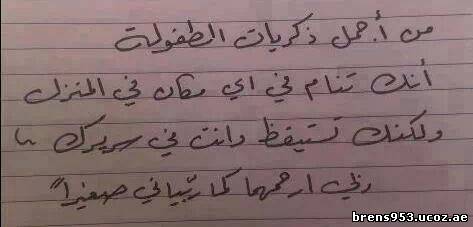 من أجمل ذكريات الطفولة
أنك تنام في اي مكان في المنزل
ولكنك تستيقظ وانت في سريرك "
ربي ارحمهما كما ربّياني صغيراً "
brens953.ucoz.ae